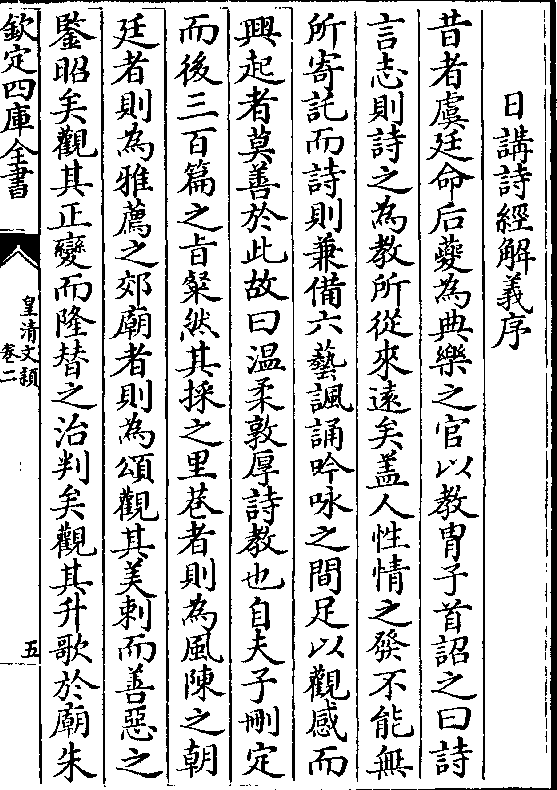 日講詩經解義序
昔者虞廷命后夔為典樂之官以教胄子首詔之曰詩
言志則詩之為教所從來遠矣蓋人性情之發不能無
所寄託而詩則兼備六藝諷誦吟咏之間足以觀感而
興起者莫善於此故曰温柔敦厚詩教也自夫子刪定
而後三百篇之旨粲然其採之里巷者則為風陳之朝
廷者則為雅薦之郊廟者則為頌觀其美刺而善惡之
鑒昭矣觀其正變而隆替之治判矣觀其升歌於廟朱
欽定四庫全書
皇清文穎
卷二
五